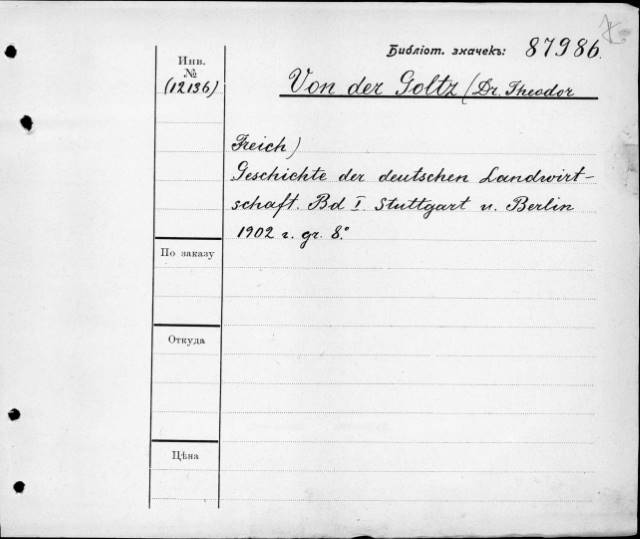 Библіот. значекъ: 87986.
Инв.
№
(12136)
Von der Goltz (Dr. Theodor
Freich)
Geschichte der deutschen Landwirt-
schaft. Bd I. Stuttgart u. Berlin
1902 г. gr. 8.°
По заказу
Откуда
Цѣна